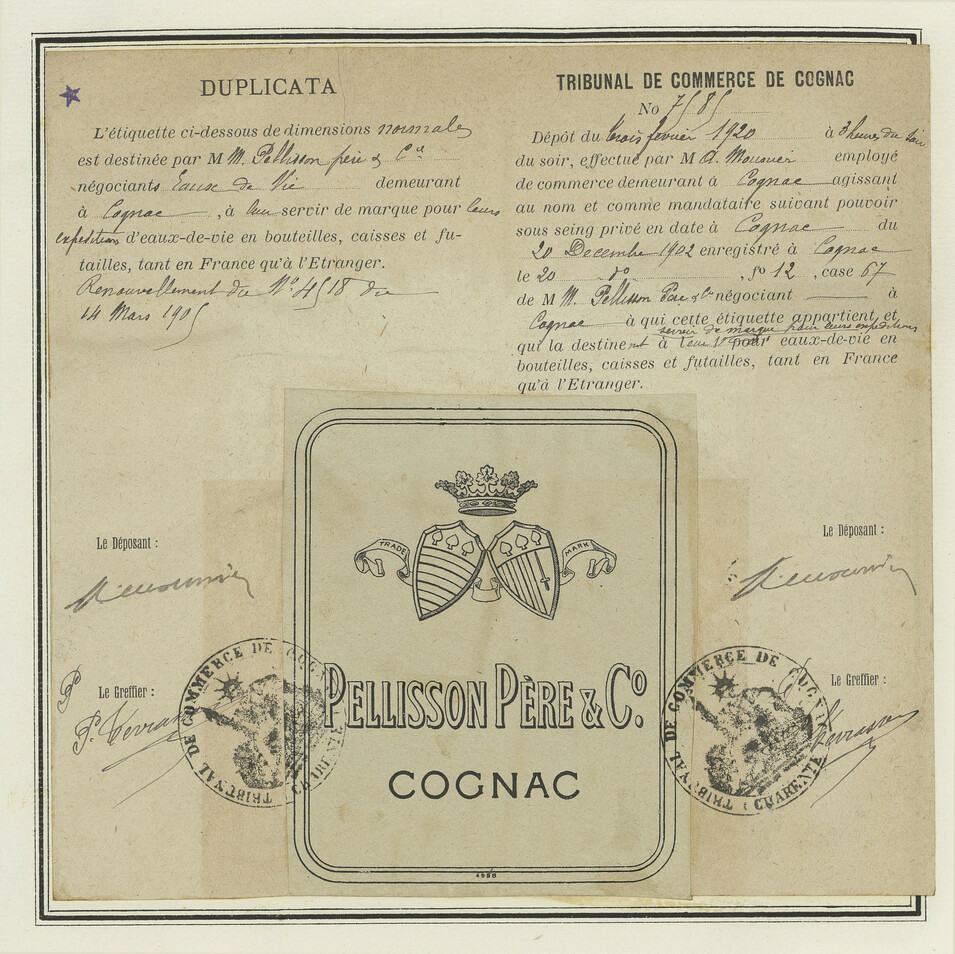 DUPLICATA
L'étiquette ci-dessous de dimensions normales
est destinée par M M. Pellisson père & Cie
négociants Eaux de Vie demeurant
à Cognac, à leur servir de marque pour leurs
expéditions d'eaux-de-vie en bouteilles, caisses et fu-
tailles, tant en France qu'à l'Etranger.
Renouvellement du No. 4518 du
14 Mars 1905
TRIBUNAL DE COMMERCE DE COGNAC
No 7585
Dépôt du trois février 1920 à 3 heures du soir
du soir, effectué par M A. Mousnier employé
de commerce demeurant à Cognac agissant
au nom et comme mandataire suivant pouvoir
sous seing privé en date à Cognac du
20 Decembre 1902 enregistré à Cognac
le 20 do, fo 12, case 67
de M M. Pellisson Père & Cie négociant à
Cognac à qui cette étiquette appartient et
servir de marque pour leurs expéditions
qui la destinent à leur pour eaux-de-vie en
bouteilles, caisses et futailles, tant en France
qu'à l'Etranger.
TRADE MARK
Le Déposant :
Le Déposant :
Le Greffier :
Le Greffier :
TRIBUNAL DE COMMERCE DE COGNAC
CHARENTE
TRIBUNAL DE COMMERCE DE COGNAC
CHARENTE
PELLISSON PÈRE & Co.
COGNAC